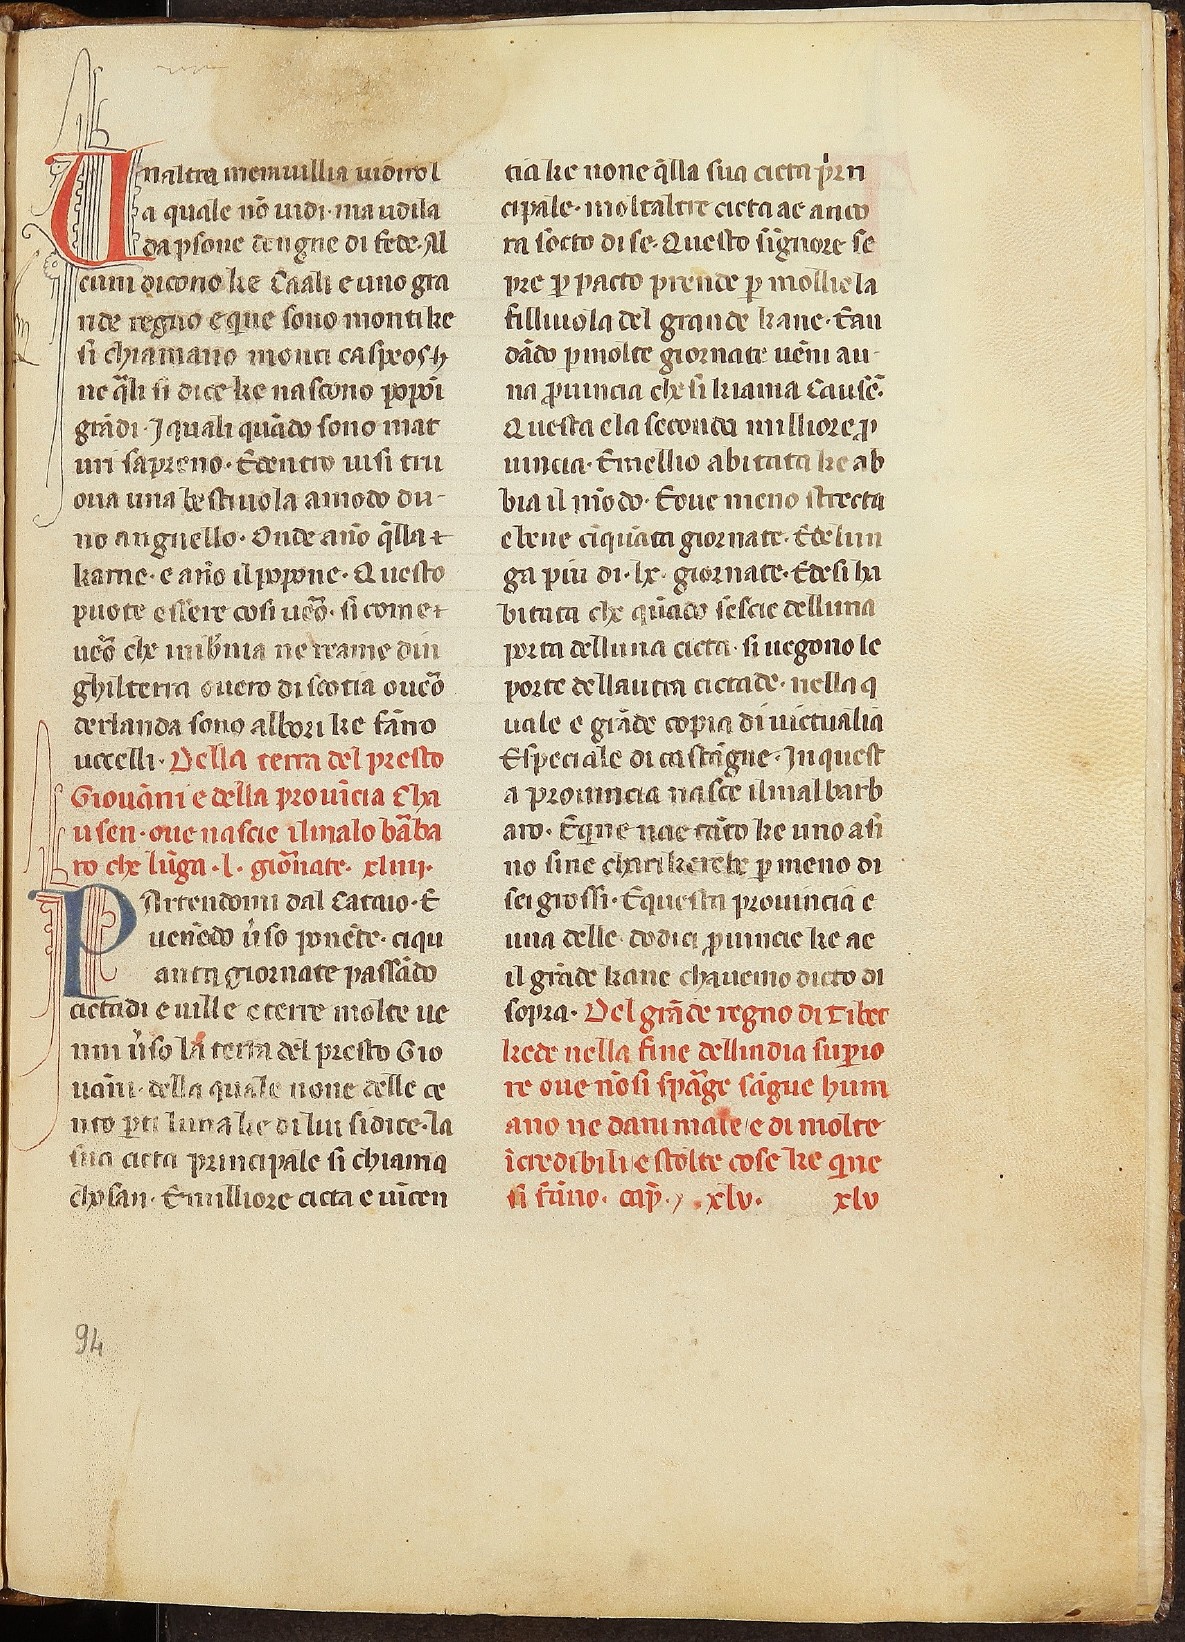 Unaltra meravillia vidirol
a quale nō vidi· ma udila
da psone dengne di fede· Al
cuni dicono ke Caali e uno gra
nde regno e que sono monti ke
si chiamano monti caspeos· h
ne q̄li si dice ke nascono popōi
grādi· I quali quādo sono mat
uri sapreno· Edentro visi tru
ova una bestiuola a modo du-
no angnello· Onde ano q̄lla
karne· e ano il popone· Questo
puote essere cosi veō· si come
veō che in ibnia ne reame din
ghilterra overo di scotia oveō
derlanda sono albori ke fāno
uccelli· Della terra del presto
Giovāni e della provīcia Cha
usen· ove nascie il malo bāba
ro che lūga ·l· giōnate· xliiij·
Partendomi dal Cataio· E
venēdo v̄so ponēte· ciqu
anta giornate passādo
cictadi e ville e terre molte ve
nni v̄so la terra del presto Gio
vāni· della quale none delle ce
nto p̄ti luna ke di lui si dice· la
sua cicta principale si chiama
chosan· E milliore cicta e vicen
tia ke none q̄lla sua cicta prin
cipale· molt altre cicta ae anco
ra socto di se· Questo signore se
pre p̄ pacto prende p̄ mollie la
filliuola del grande kane· Ean
dādo p molte giornate vēni au-
na p̄vincia che si kiama Causē·
Questa e la seconda milliore p̄
vincia· E mellio abitata ke ab
bia il mōdo· E ove meno strecta
e bene ciquāta giornate· Ede lun
ga piu di ·lx· giornate· Ede si ha
bitata che quādo sescie delluna
porta delluna cicta· si vegono le
porte dellautra cictade· nella q
uale e grāde copia di victualia
E speciale di castāgne· In quest
a provincia nasce il malbarb
aro· E que nae tāto ke uno asi
no sine charikerebe p̄ meno di
sei grossi· E questa provincia e
una delle dodici p̄vincie ke ae
il grāde kane chavemo dicto di
sopra· Del grāde regno di Tibet
kede nella fine dellindia supio
re ove nō si spāge sāgue hum
ano ne danimale e di molte
icredibili e stolte cose ke que
si fāno· cap̄· xlv· xlv
94